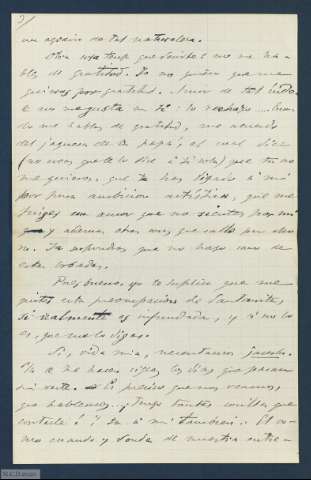 3/
un agravio de tal naturaleza.
Otra vez tengo que decirte! no me ha-
bles de gratitud. Yo no quiero que me
quieras por gratitud. Amor de tal índo-
le no me gusta en ti: lo rechazo.... Cuan-
do me hablas de gratitud, me acuerdo
del de papá, el cual dice
(no creas que te lo dice a ti sola) que tú no
me quieres, que te has ligado a mí
por pura ambición artística, que me
finges un amor que no sientes por mí
y además otras cosas que callo por
no. Ya sabes que no hago caso de
estas bobadas.
Pues bueno, yo te suplico que me
quites esta preocupación de
si realmente es infundada, y si no lo
es, que me lo digas.
Sí, vida mía, necesitamos juntos.
Ya se me hacen siglos los días que pasan
sin verte. Es preciso que nos veamos,
que hablemos... ¡Tengo tantas cosillas que
contarte! ¡Y tú a mí también! El
cuando y donde de nuestra entre-